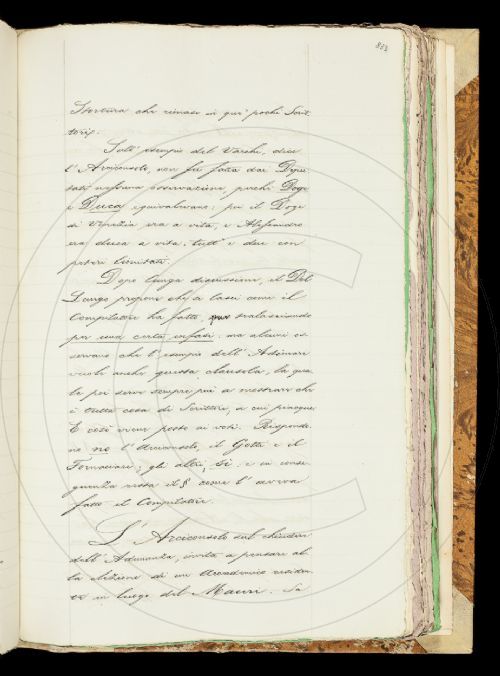 853
Storcitura che rimase in que' pochi Scrit-
torip.
Sull' esempio del Varchi, dice
l'Arciconsolo, non fu fatta dai Depu-
tati nessuna osservazione, perchè Doge
e Duca equivalevano: per il Doge
di Venezia era a vita, e Alessandro
era duca a vita: tutt' e due con
poteri limitati.
Dopo lunga discussione, il Del
Lungo propone che si lasci come il
Compilatore ha fatto, tralasciando
per una certa enfasi: ma alcuni os-
servano che l'esempio dell' Adimari
vuole anche questa clausola, la qua-
le poi serve sempre più a mostrare che
è tutta cosa di Scrittori, a cui piacque.
E così viene posto ai voti. Rispondo-
no no l'Arciconsolo, il Gotti e il
Fornaciari; gli altri, sì. e in conse-
guenza resta il § come l'aveva
fatto il Compilatore.
L'Arciconsolo sul chiudere
dell' Adunanza, invita a pensare al-
la elezione di un Accademico residen-
te in luogo del Mauri. Sa-